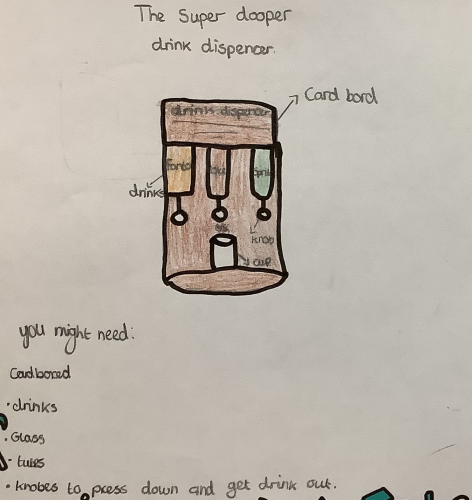 The Super dooper
drink dispencer.
Card bord
drinks dispencer
Fanta
Coke
Sprite
drinks
knob
cup
you might need:
Cardbored
• drinks
• Glass
- tubes
• knobes to press down and get drink out.